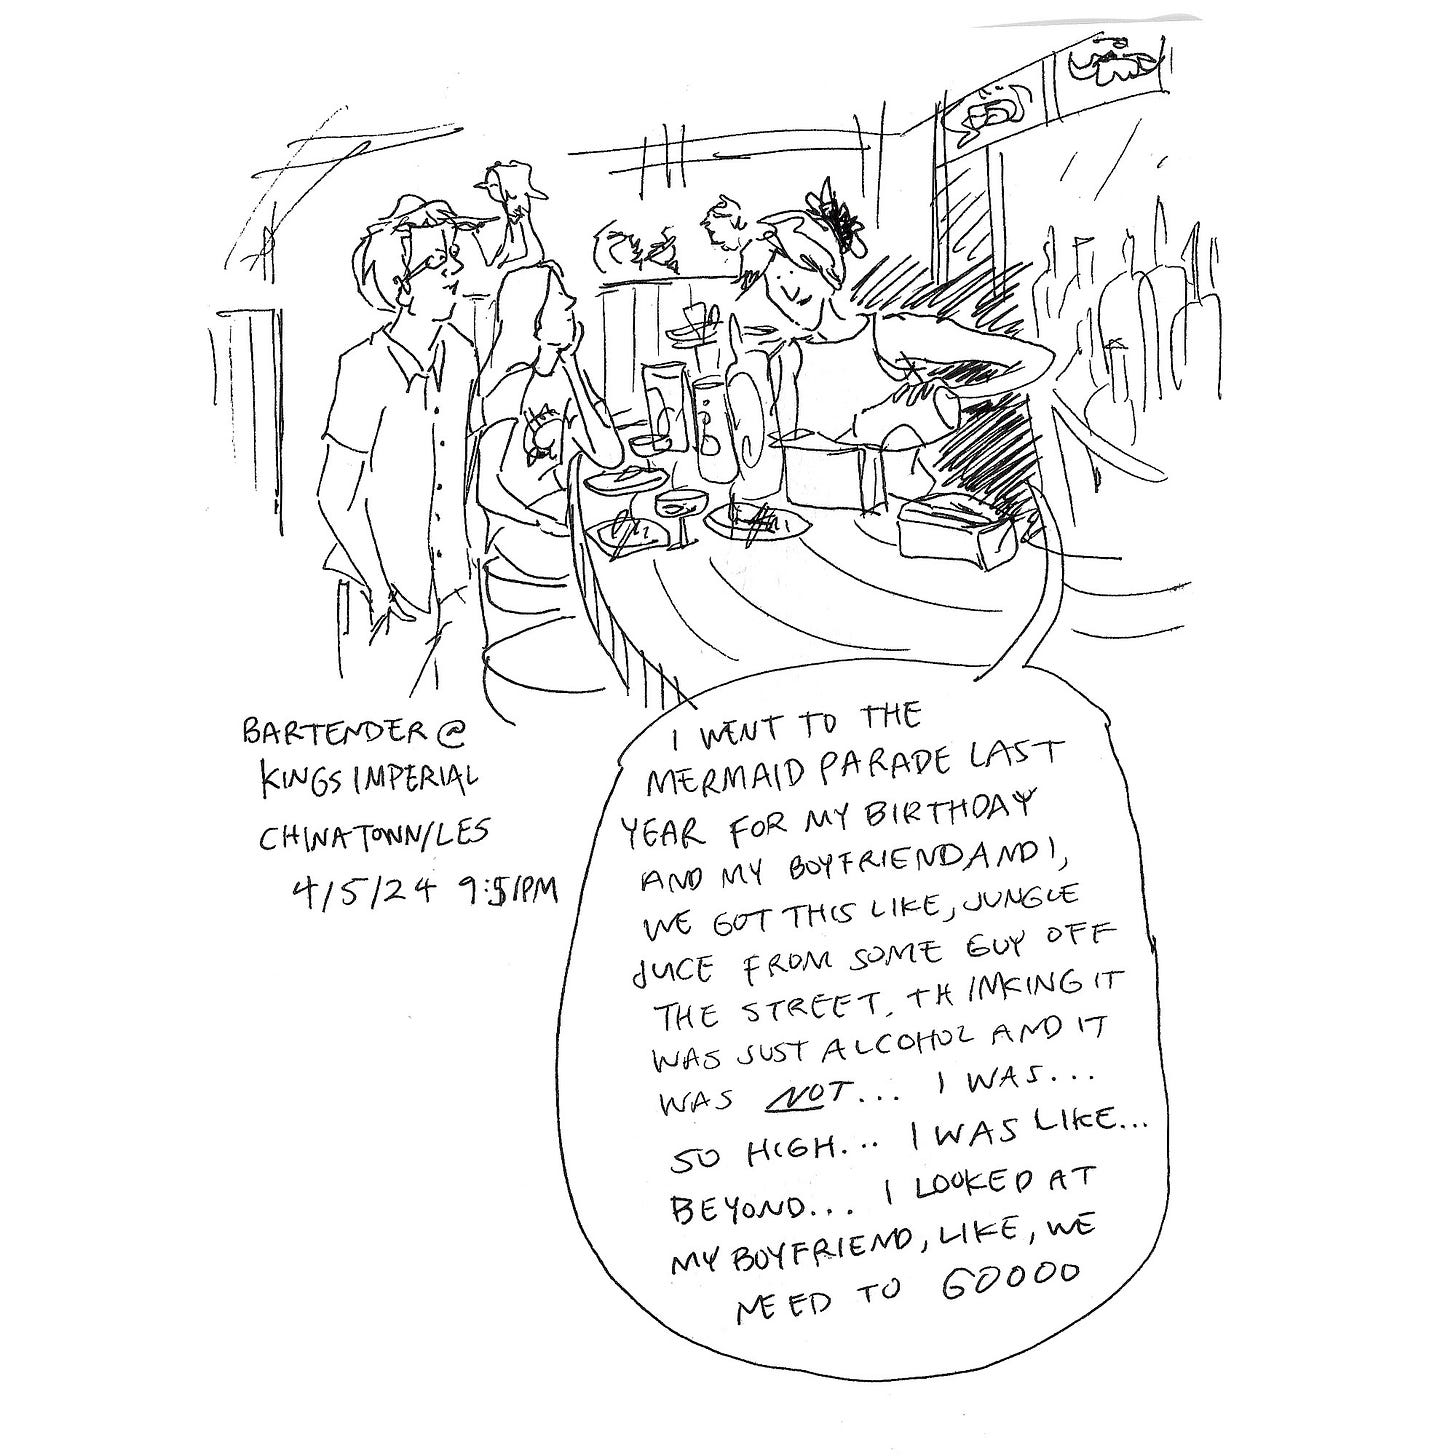 BARTENDER @
KINGS IMPERIAL
CHINATOWN/LES
4/5/24 9:51PM
I WENT TO THE
MERMAID PARADE LAST
YEAR FOR MY BIRTHDAY
AND MY BOYFRIEND AND I,
WE GOT THIS LIKE, JUNGLE
JUCE FROM SOME GUY OFF
THE STREET, THINKING IT
WAS JUST ALCOHOL AND IT
WAS NOT... I WAS...
SO HIGH... I WAS LIKE...
BEYOND... I LOOKED AT
MY BOYFRIEND, LIKE, WE
NEED TO GOOOO